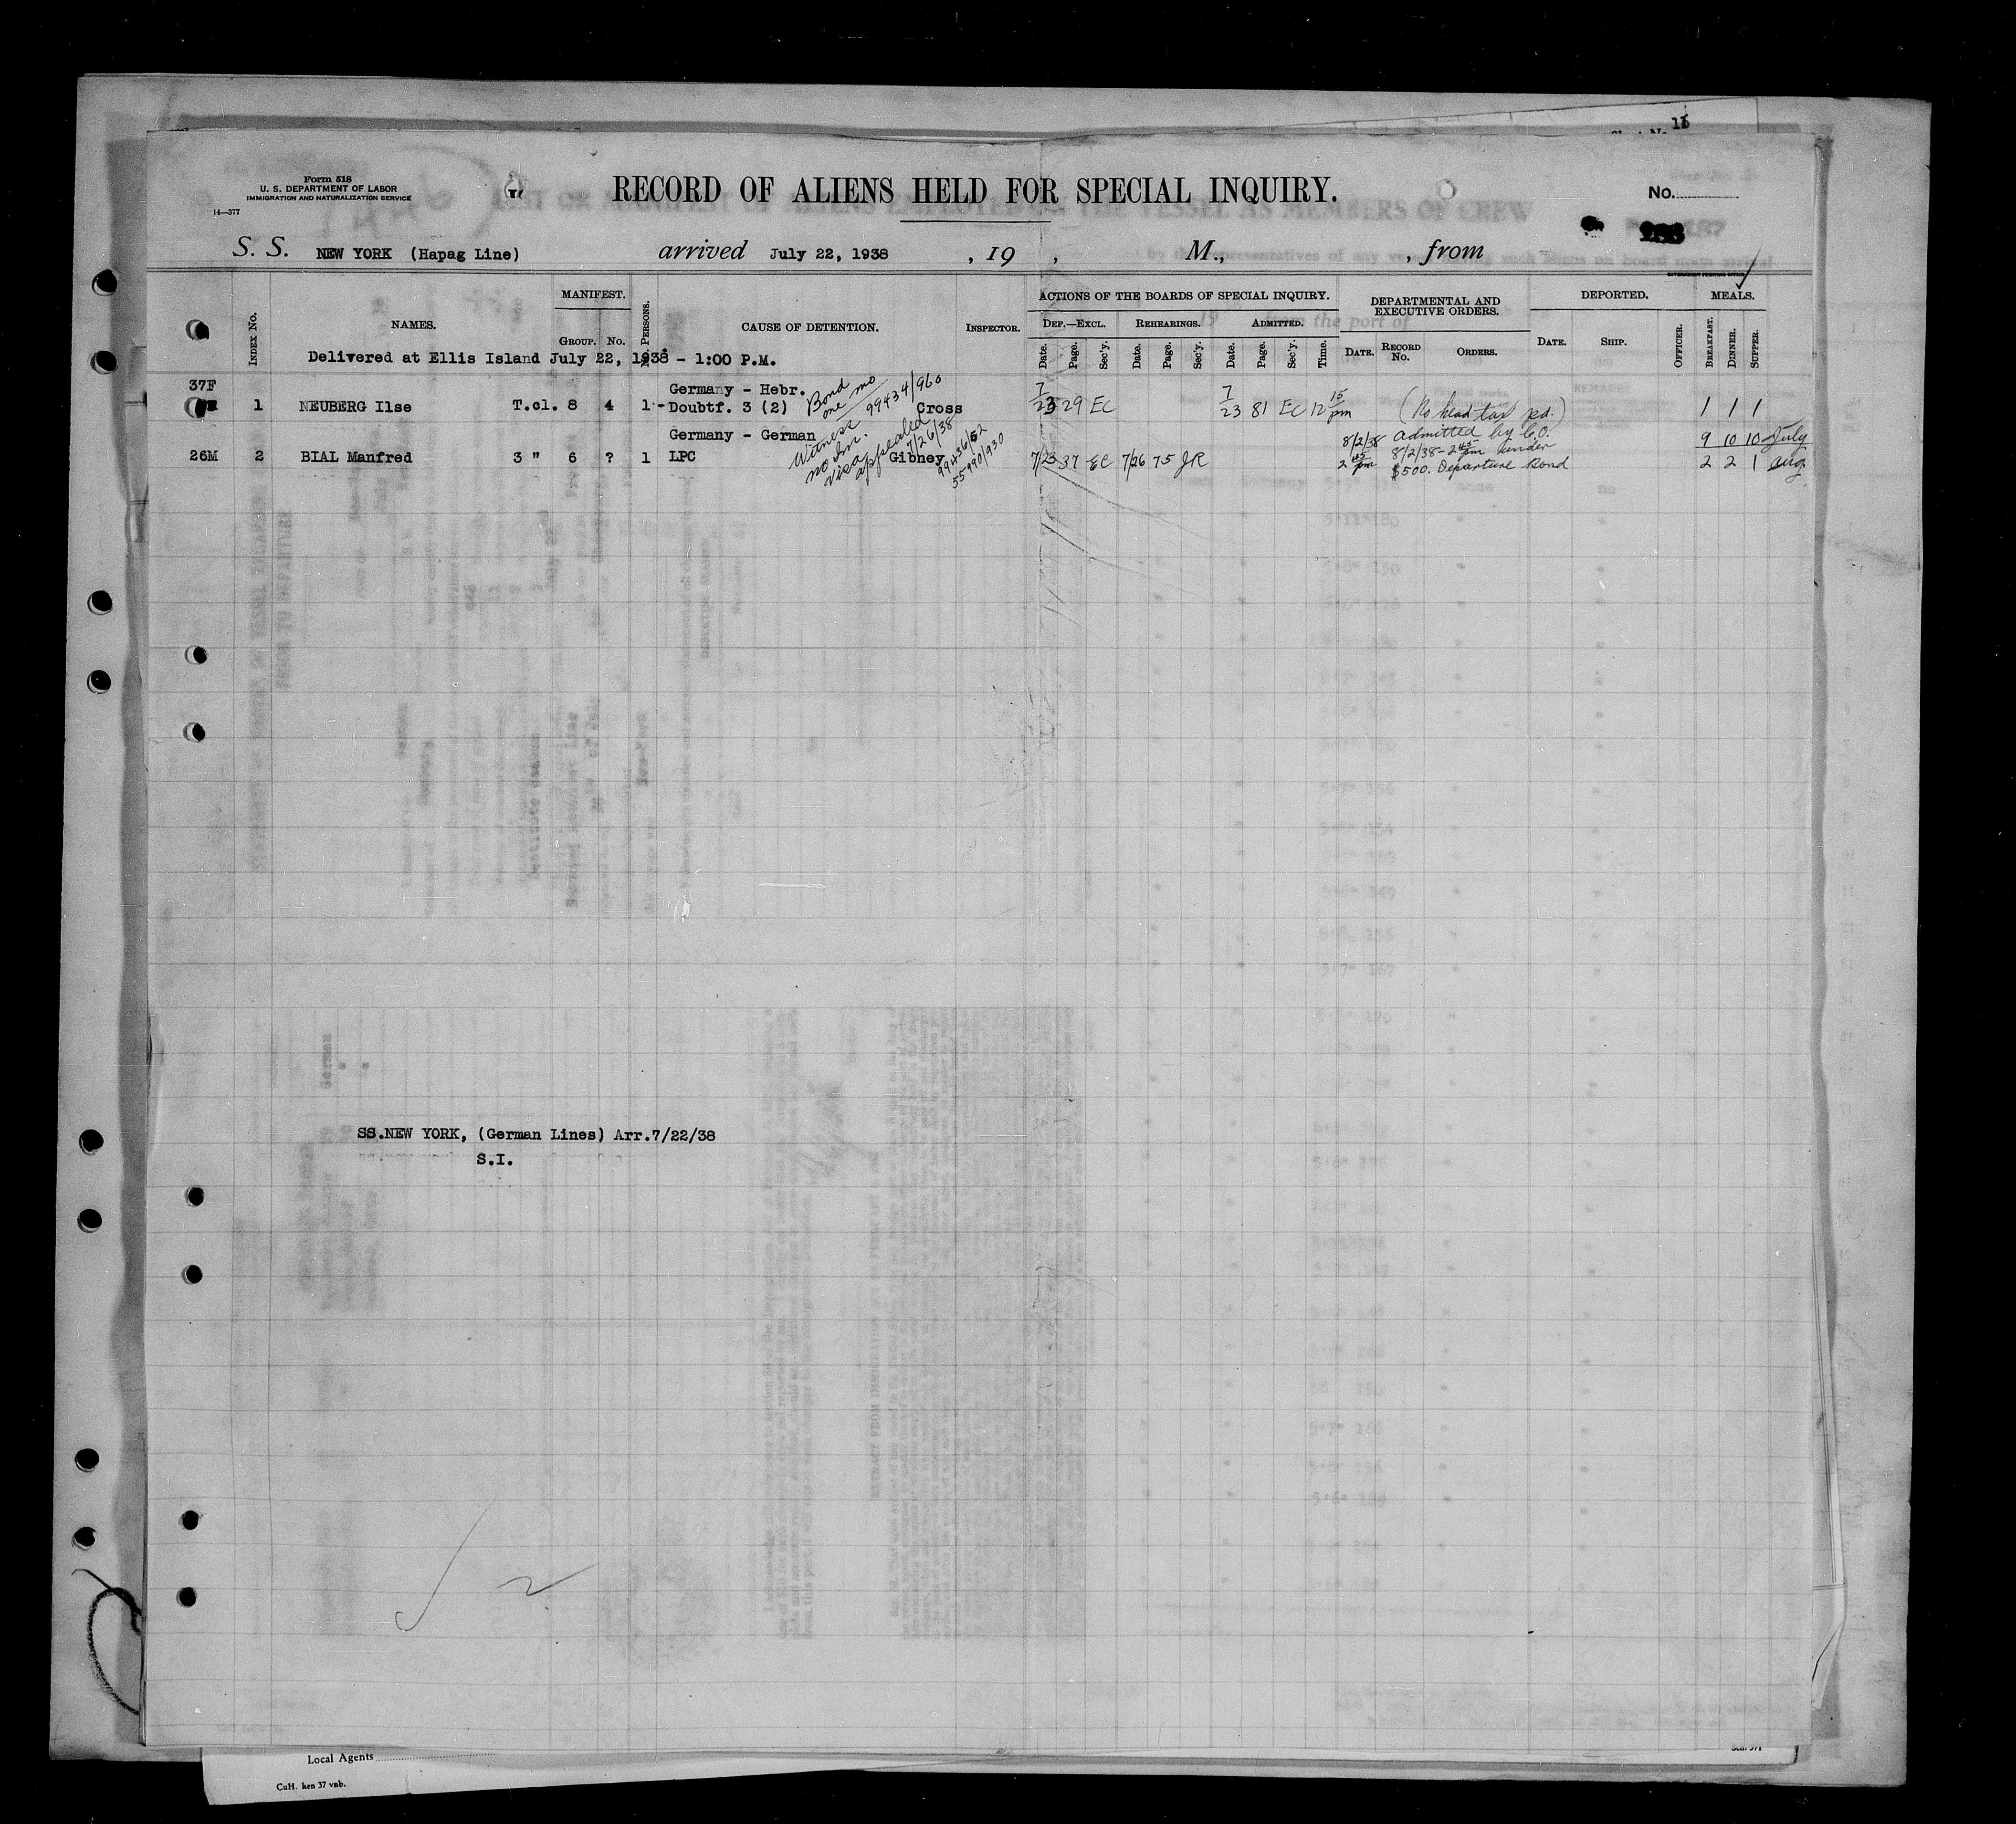 Form 518
U. S. DEPARTMENT OF LABOR
IMMIGRATION AND NATURALIZATION SERVICE
14—377
RECORD OF ALIENS HELD FOR SPECIAL INQUIRY.
No.
S. S. NEW YORK (Hapag Line) arrived July 22, 1938 , 19 , M., , from
INDEX NO. NAMES. MANIFEST. GROUP. NO. NO. PERSONS. CAUSE OF DETENTION. INSPECTOR. ACTIONS OF THE BOARDS OF SPECIAL INQUIRY. DEPARTMENTAL AND EXECUTIVE ORDERS. DEPORTED. MEALS.
DEF.—EXCL. REHEARINGS. ADMITTED.
Date. Page. Sec'y. Date. Page. Sec'y. Date. Page. Sec'y. Time. DATE. RECORD No. ORDERS. DATE. SHIP. OFFICER. BREAKFAST. DINNER. SUPPER.
Delivered at Ellis Island July 22, 1938 - 1:00 P.M.
37F
Germany - Hebr. Bond one mo
1 NEUBERG Ilse T.cl. 8 4 1 - Doubtf. 3 (2) 99434/960 Cross 7/23 29 EC 7/23 81 EC 12 15 pm (No head tax pd.) 1 1 1
Germany - German Witness no Im. Visa appealed 7/26/38 99436/52 55990/930
8/2/38 2 45 pm Admitted by C.O. 8/2/38 - 2 45 pm under $500. Departure Bond
9 10 10 July
26M 2 BIAL Manfred 3 " 6 ? 1 LPC Gibney 7/23 37 EC 7/26 75 JR 2 2 1 Aug.
SS.NEW YORK, (German Lines) Arr.7/22/38
S.I.
2
Local Agents
CuH. ken 37 vnb.